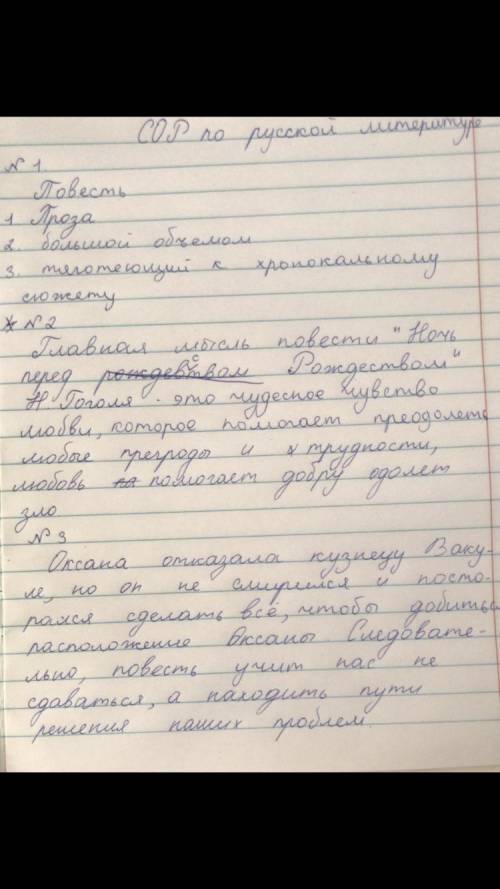 СОР по русской литературе
№ 1
Повесть
1 Проза
2. большой объемом
3. тяготеющий к хропокальному
сюжету
№ 2
Главная мысль повести "Ночь
перед рождевством Рождеством"
Н. Гоголя - это чудесное чувство
любви, которое помогает преодолеть
любые преграды и трудности,
любовь помогает добру одолет
зло
№ 3
Оксана отказала кузнецу Ваку-
ле, но он не смирился и посто-
рался сделать всё, чтобы добиться
расположение Оксаны Следовате-
льно, повесть учит нас не
сдаваться, а находить пути
решения наших проблем.